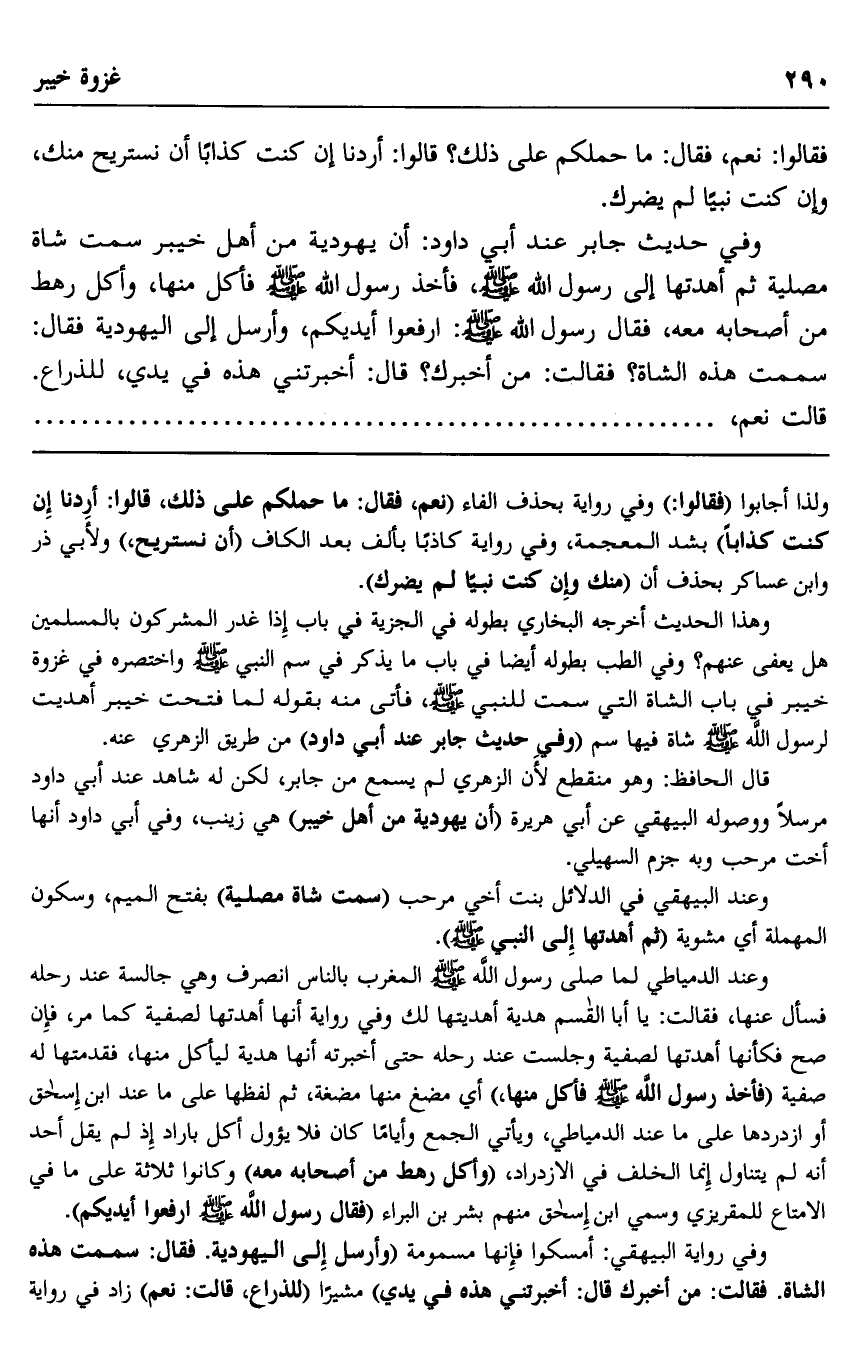 ٢٩٠ غزوة خيبر
فقالوا: نعم، فقال: ما حملكم على ذلك؟ قالوا: أردنا إن كنت كذابًا أن نستريح منك،
وإن كنت نبيًا لم يضرك.
وفي حديث جابر عند أبي داود: أن يهودية من أهل خيبر سمت شاة
مصلية ثم أهدتها إلى رسول الله ﷺ، فأخذ رسول الله ﷺ فأكل منها، وأكل رهط
من أصحابه معه، فقال رسول الله ﷺ: ارفعوا أيديكم، وأرسل إلى اليهودية فقال:
سممت هذه الشاة؟ فقالت: من أخبرك؟ قال: أخبرتني هذه في يدي، للذراع.
قالت نعم، ......................................................
ولذا أجابوا (فقالوا:) وفي رواية بحذف الفاء (نعم، فقال: ما حملكم على ذلك، قالوا: أردنا إن
كنت كذاباً) بشد المعجمة، وفي رواية كاذبًا بألف بعد الكاف (أن نستريح،) ولأبي ذر
وابن عساكر بحذف أن (منك وإن كنت نبيًا لم يضرك).
وهذا الحديث أخرجه البخاري بطوله في الجزية في باب إذا غدر المشركون بالمسلمين
هل يعفى عنهم؟ وفي الطب بطوله أيضا في باب ما يذكر في سم النبي ﷺ واختصره في غزوة
خيبر في باب الشاة التي سمت للنبي ﷺ، فأتى منه بقوله لما فتحت خيبر أهديت
لرسول اللَّه ﷺ شاة فيها سم (وفي حديث جابر عند أبي داود) من طريق الزهري عنه.
قال الحافظ: وهو منقطع لأن الزهري لم يسمع من جابر، لكن له شاهد عند أبي داود
مرسلاً ووصوله البيهقي عن أبي هريرة (أن يهودية من أهل خيبر) هي زينب، وفي أبي داود أنها
أخت مرحب وبه جزم السهيلي.
وعند البيهقي في الدلائل بنت أخي مرحب (سمت شاة مصلية) بفتح الميم، وسكون
المهملة أي مشوية (ثم أهدتها إلى النبي ﷺ).
وعند الدمياطي لما صلى رسول اللَّه ﷺ المغرب بالناس انصرف وهي جالسة عند رحله
فسأل عنها، فقالت: يا أبا القٰسم هدية أهديتها لك وفي رواية أنها أهدتها لصفية كما مر، فإن
صح فكأنها أهدتها لصفية وجلست عند رحله حتى أخبرته أنها هدية ليأكل منها، فقدمتها له
صفية (فأخذ رسول اللَّه ﷺ فأكل منها،) أي مضغ منها مضغة، ثم لفظها على ما عند ابن إسحٰق
أو ازدردها على ما عند الدمياطي، ويأتي الجمع وأيامًا كان فلا يؤول أكل باراد إذ لم يقل أحد
أنه لم يتناول إنما الخلف في الازدراد، (وأكل رهط من أصحابه معه) وكانوا ثلاثة على ما في
الامتاع للمقريزي وسمي ابن إسحٰق منهم بشر بن البراء (فقال رسول اللَّه ﷺ ارفعوا أيديكم).
وفي رواية البيهقي: أمسكوا فإنها مسمومة (وأرسل إلى اليهودية. فقال: سممت هذه
الشاة. فقالت: من أخبرك قال: أخبرتني هذه في يدي) مشيرًا (للذراع، قالت: نعم) زاد في رواية